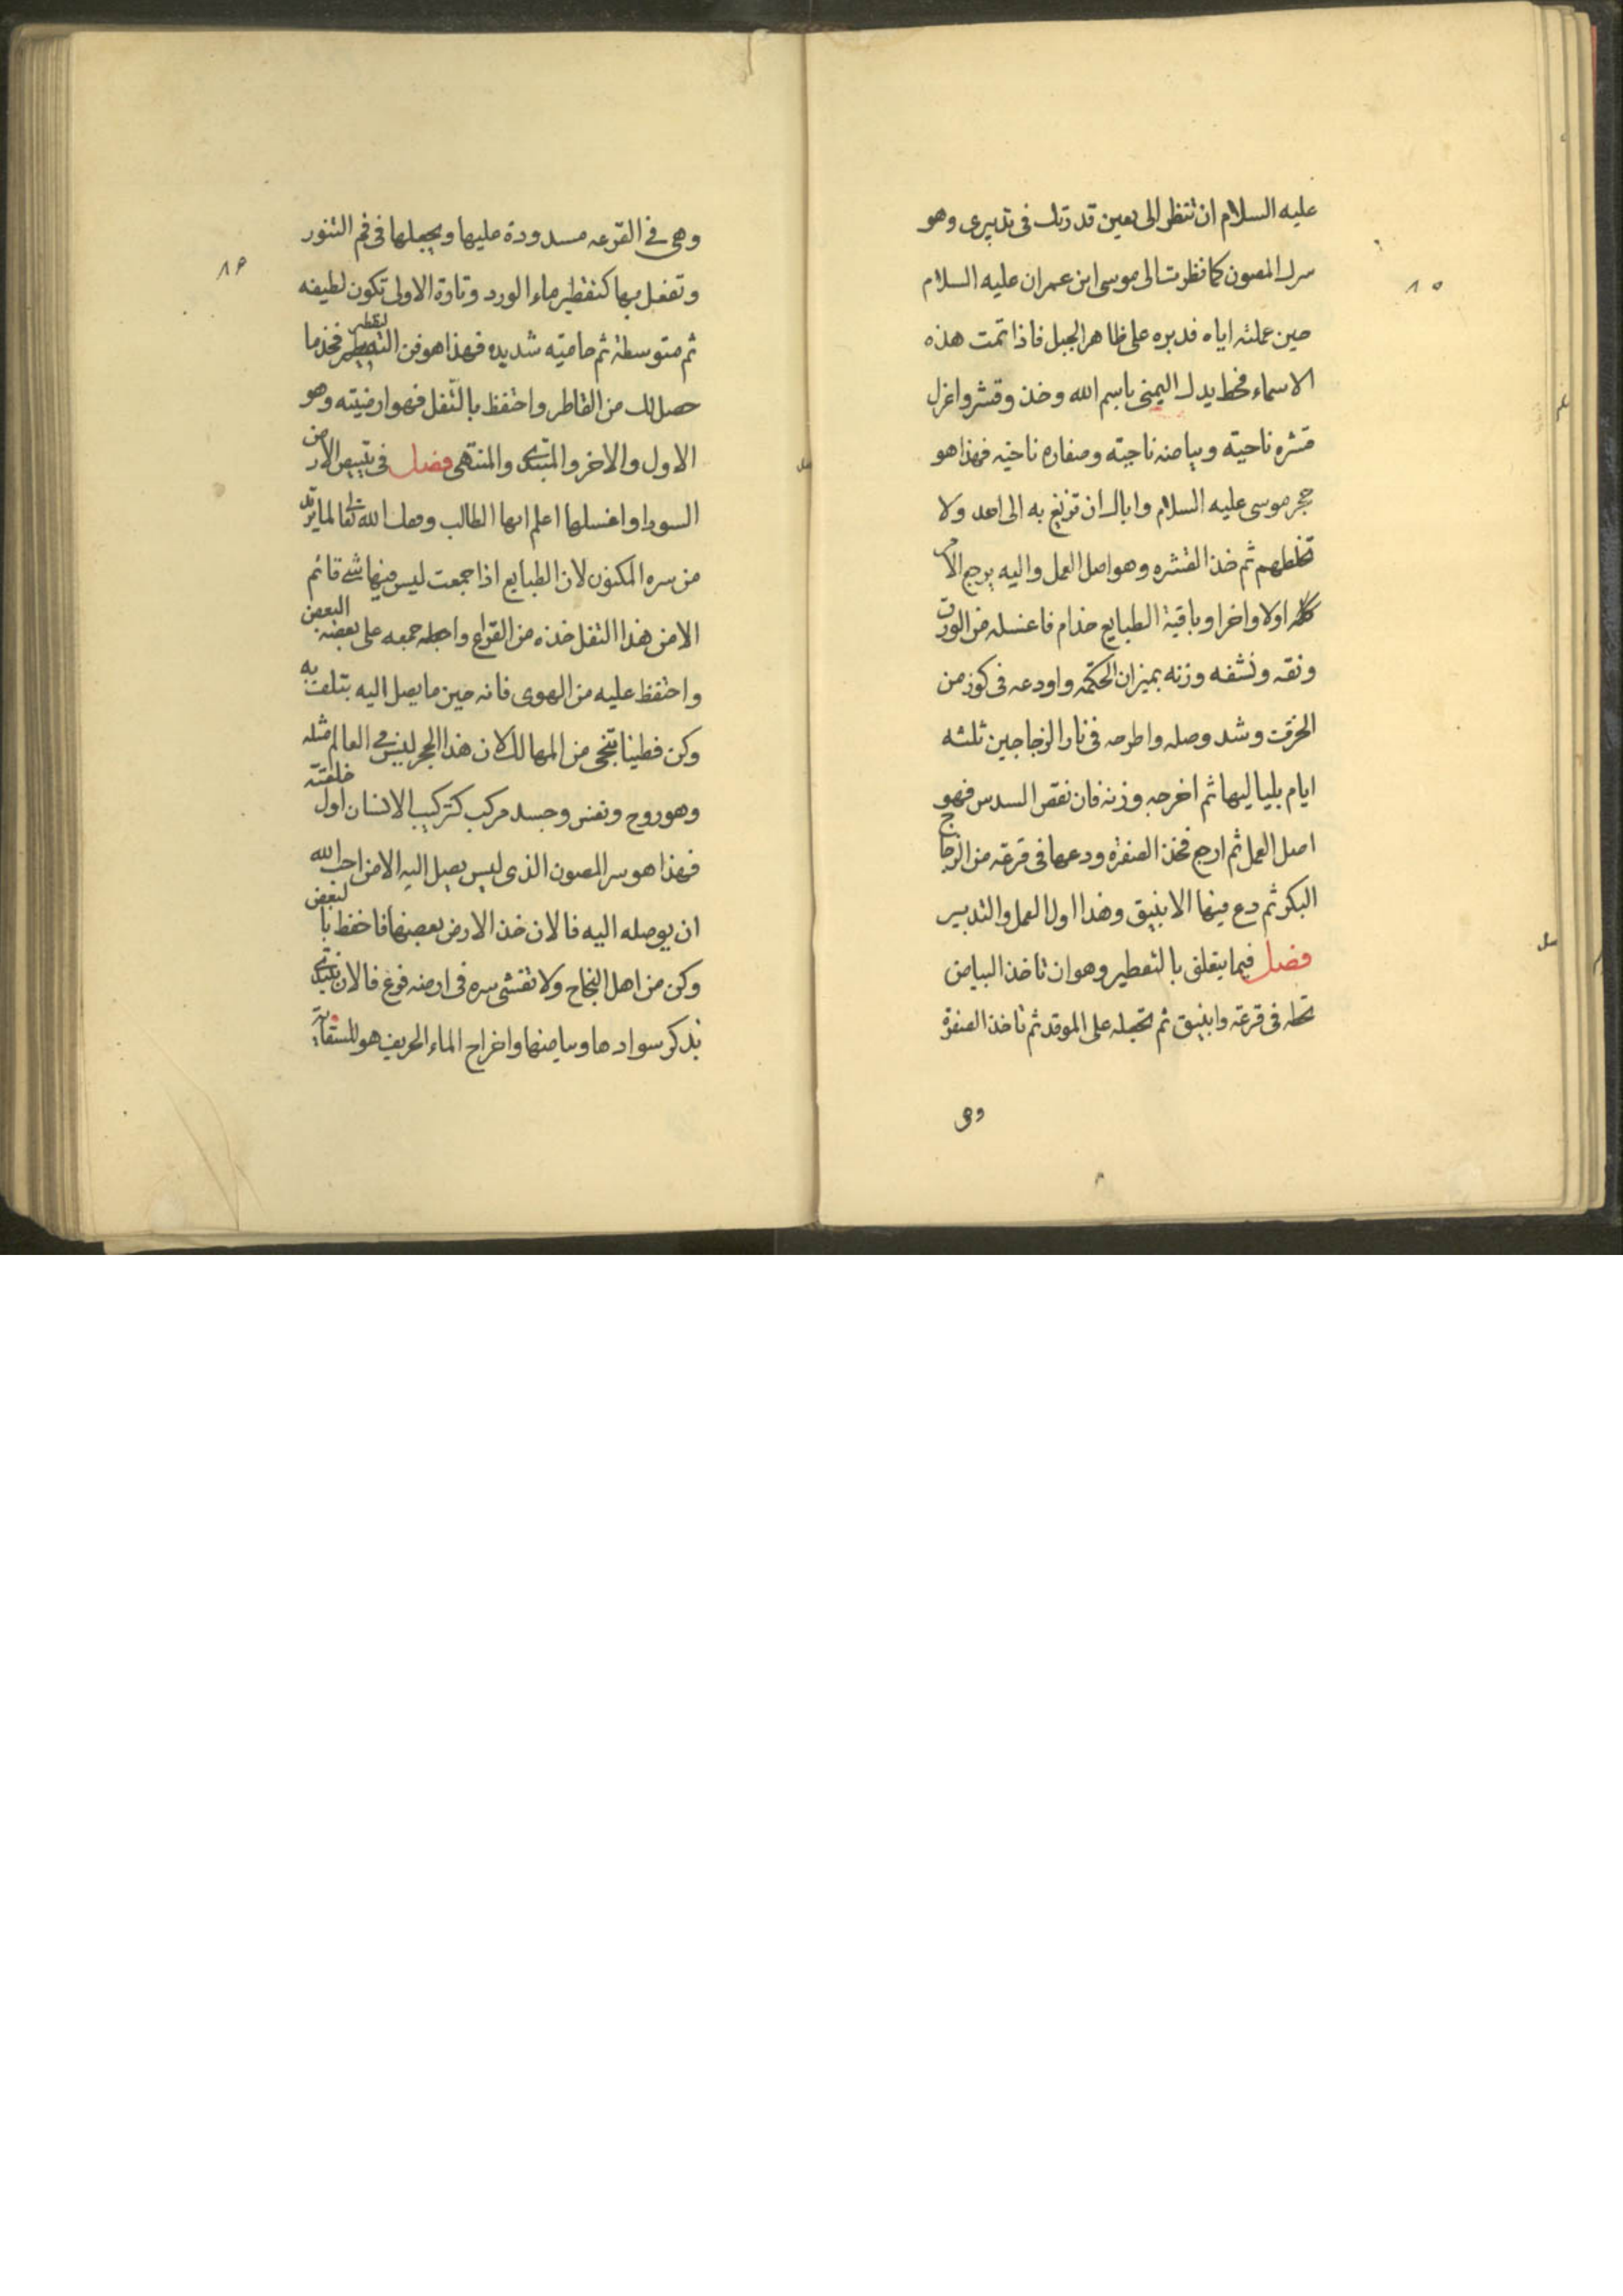 عليه السلام ان تنظر الى بعين قدرتك فى تدبيرى وهو
سرك المصون كما نظرت الى موسى ابن عمران عليه السلام
حين عملته اياه فدبره على ظاهر الجبل فاذا تمت هذه
الاسماء فحط يدك اليمنى باسم الله وخذ وقشر واعزل
قشره ناحيته وبياضه ناحيته وصفاره ناحيه فهذا هو
حجر موسى عليه السلام واياك ان تزيغ به الى احد ولا
تخلطهم ثم خذ القشره وهو اصل العمل واليه يرجع الامر
كله اولا واخرا وباقية الطبايع خدام فاغسله من الورق
ونقه ونشفه وزنه بميزان الحكمه واودعه فى كوز من
الخزف وشد وصله واطرحه فى نار الزجاجين ثلثه
ايام بلياليها ثم اخرجه وزنه فان نقص السدس فهو
اصل العمل ثم ارجع فخذ الصفره ودعها فى قرعه من الزجاج
البكر ثم دع فيها الانبيق وهذا اول العمل والتدبير
فصل فيما يتعلق بالتقطير وهو ان تاخذ البياض
تحله فى قرعة وانبيق ثم تجعله على الموقد ثم تاخذ الصفرة
وهى
٨٥
وهى فى القرعه مسدودة عليها ويجعلها فى فم التنور
وتفعل بها كتقطير ماء الورد وتارة الاولى تكون لطيفه
ثم متوسطة ثم حاميه شديده فهذا هو فن التقطير فخذ ما
حصل لك من القاطر واحتفظ بالثفل فهو ارضيته وهو
الاول والاخر والمبتدى والمنتهى فصل فى تبييض الارض
السودا واغسلها اعلم ايها الطالب وفقك الله تعالى لما تريد
من سره المكنون لان الطبايع اذا جمعت ليس فيها شى قائم
الا من هذا الثفل خذه من القراع واجعله جمعه على بعضه البعض
واحتفظ عليه من الهوى فانه حين ما يصل اليه يتلفه
وكن فطينا تنجى من المهالك لان هذا الحجر ليس فى العالم مثله
وهو روح ونفس وجسد مركب كتركيب الانسان اول خلقته
فهذا هو سر المصون الذى ليس يصل اليه الا من احب الله
ان يوصله اليه فالان خذ الارض بعضها فاحفظ بالبعض
وكن من اهل النجاح ولا تفشى سره فى ارضه فرغ فالان نبتدى
بذكر سوادها وبياضها واخراج الماء الحريف هو للسقاية
٨٦